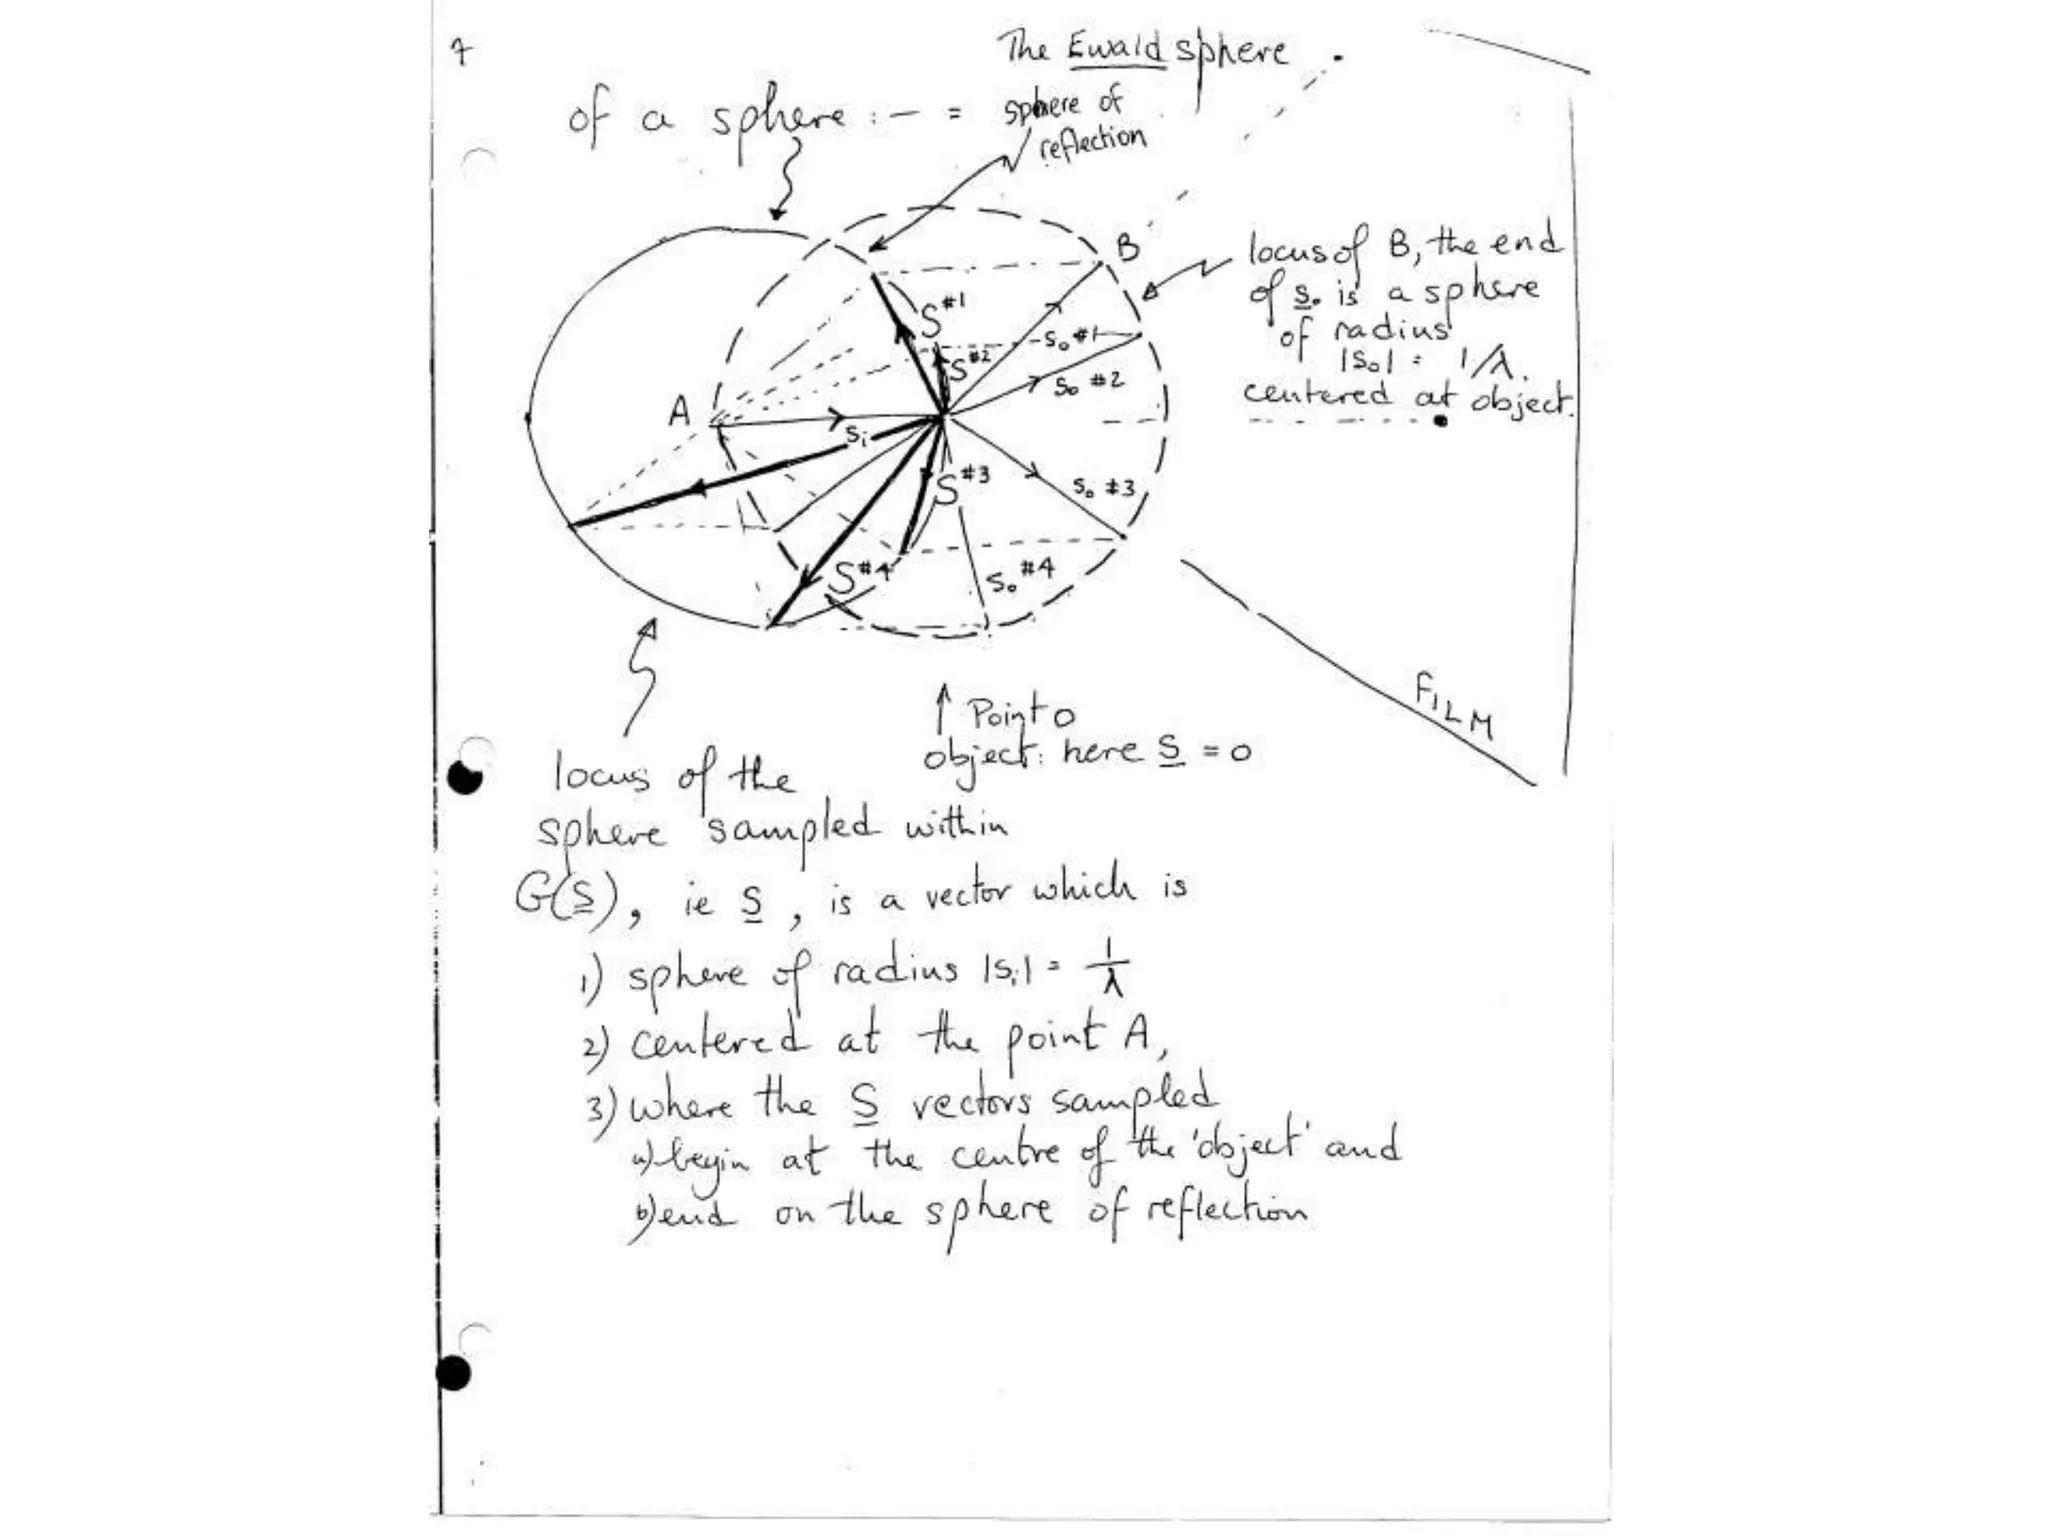 7
The Ewald sphere
of a sphere :- = sphere of
reflection
B
locus of B, the end
of s₀ is a sphere
of radius
|s₀| = 1/λ.
centered at object.
S#1
S#2
s₀#1
s₀#2
A
sᵢ
S#3
s₀#3
S#4
s₀#4
FILM
↑ Point O
object: here S = 0
locus of the
sphere sampled within
G(S), ie S, is a vector which is
1) sphere of radius |sᵢ| = 1/λ
2) centered at the point A,
3) where the S vectors sampled
a) begin at the centre of the 'object' and
b) end on the sphere of reflection